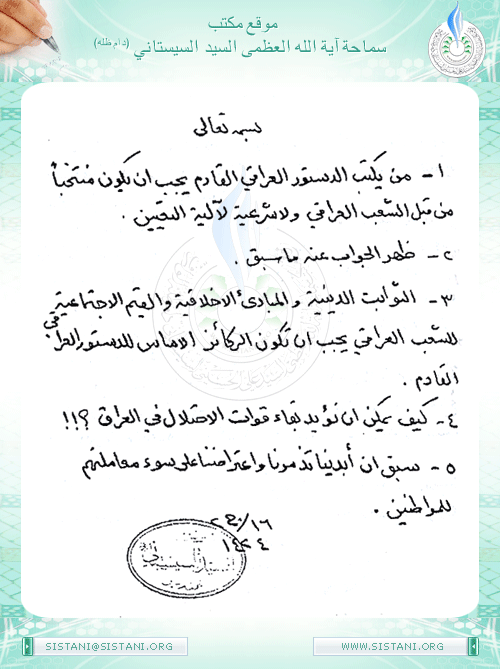 موقع مكتب
سماحة آية الله العظمى السيد السيستاني (دام ظله)
بسمه تعالى
١- من يكتب الدستور العراقي القادم يجب ان يكون منتخباً
من قبل الشعب العراقي ولا شرعية لآلية التعيين .
٢- ظهر الجواب عنه مما سبق .
٣- الثوابت الدينية والمبادئ الاخلاقية والقيم الاجتماعية
للشعب العراقي يجب ان تكون الركائز الاساس للدستور العراقي
القادم .
٤- كيف يمكن ان نؤيد بقاء قوات الاحتلال في العراق ؟!!
٥- سبق ان أبدينا تذمرنا واعتراضنا على سوء معاملتهم
للمواطنين .
١٤٢٤
SISTANI@SISTANI.ORG
WWW.SISTANI.ORG